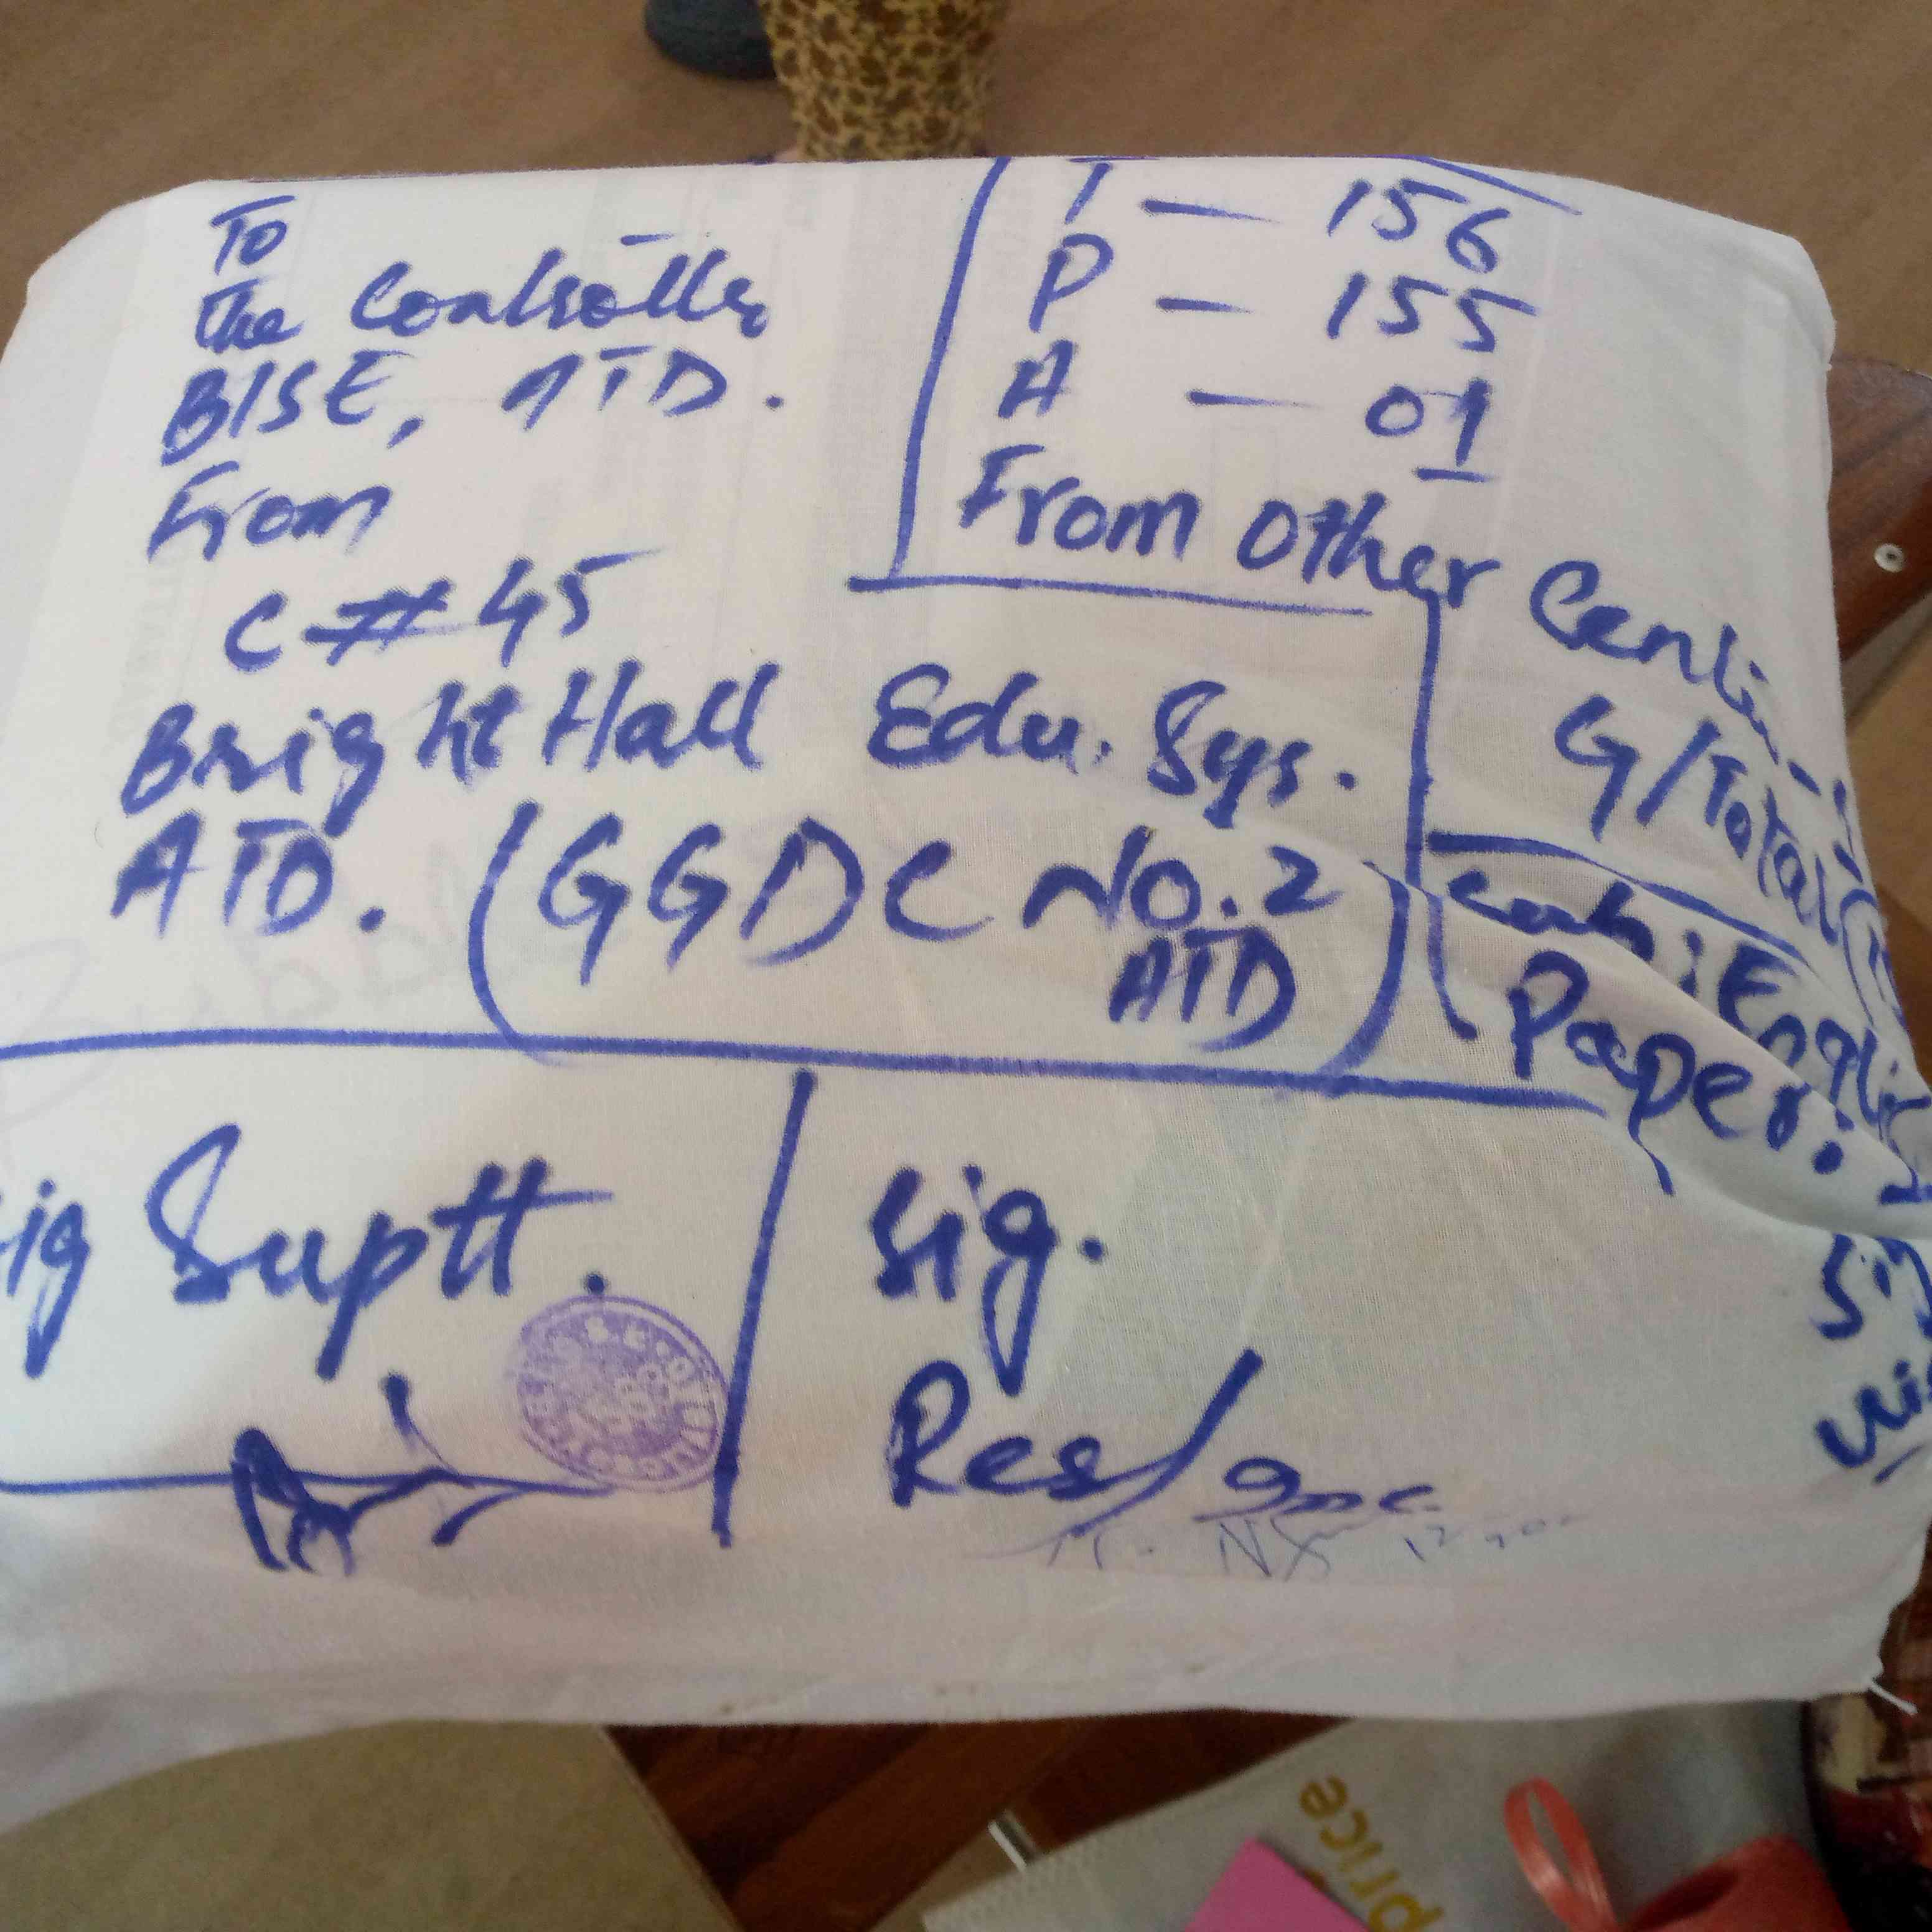 To
the Controller
BISE, ATD.
From
C # 45
Bright Hall Edu. Sys.
ATD. (GGDC No. 2
ATD)
T — 156
P — 155
A — 01
From Other
G/Total
Paper:
Sig Suptt.
Sig.
Res/
price